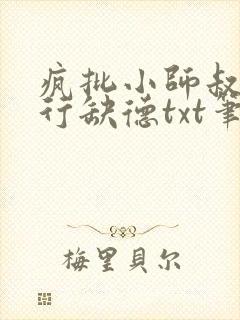 疯批小師叔
行缺德txt筆
梅里貝尔